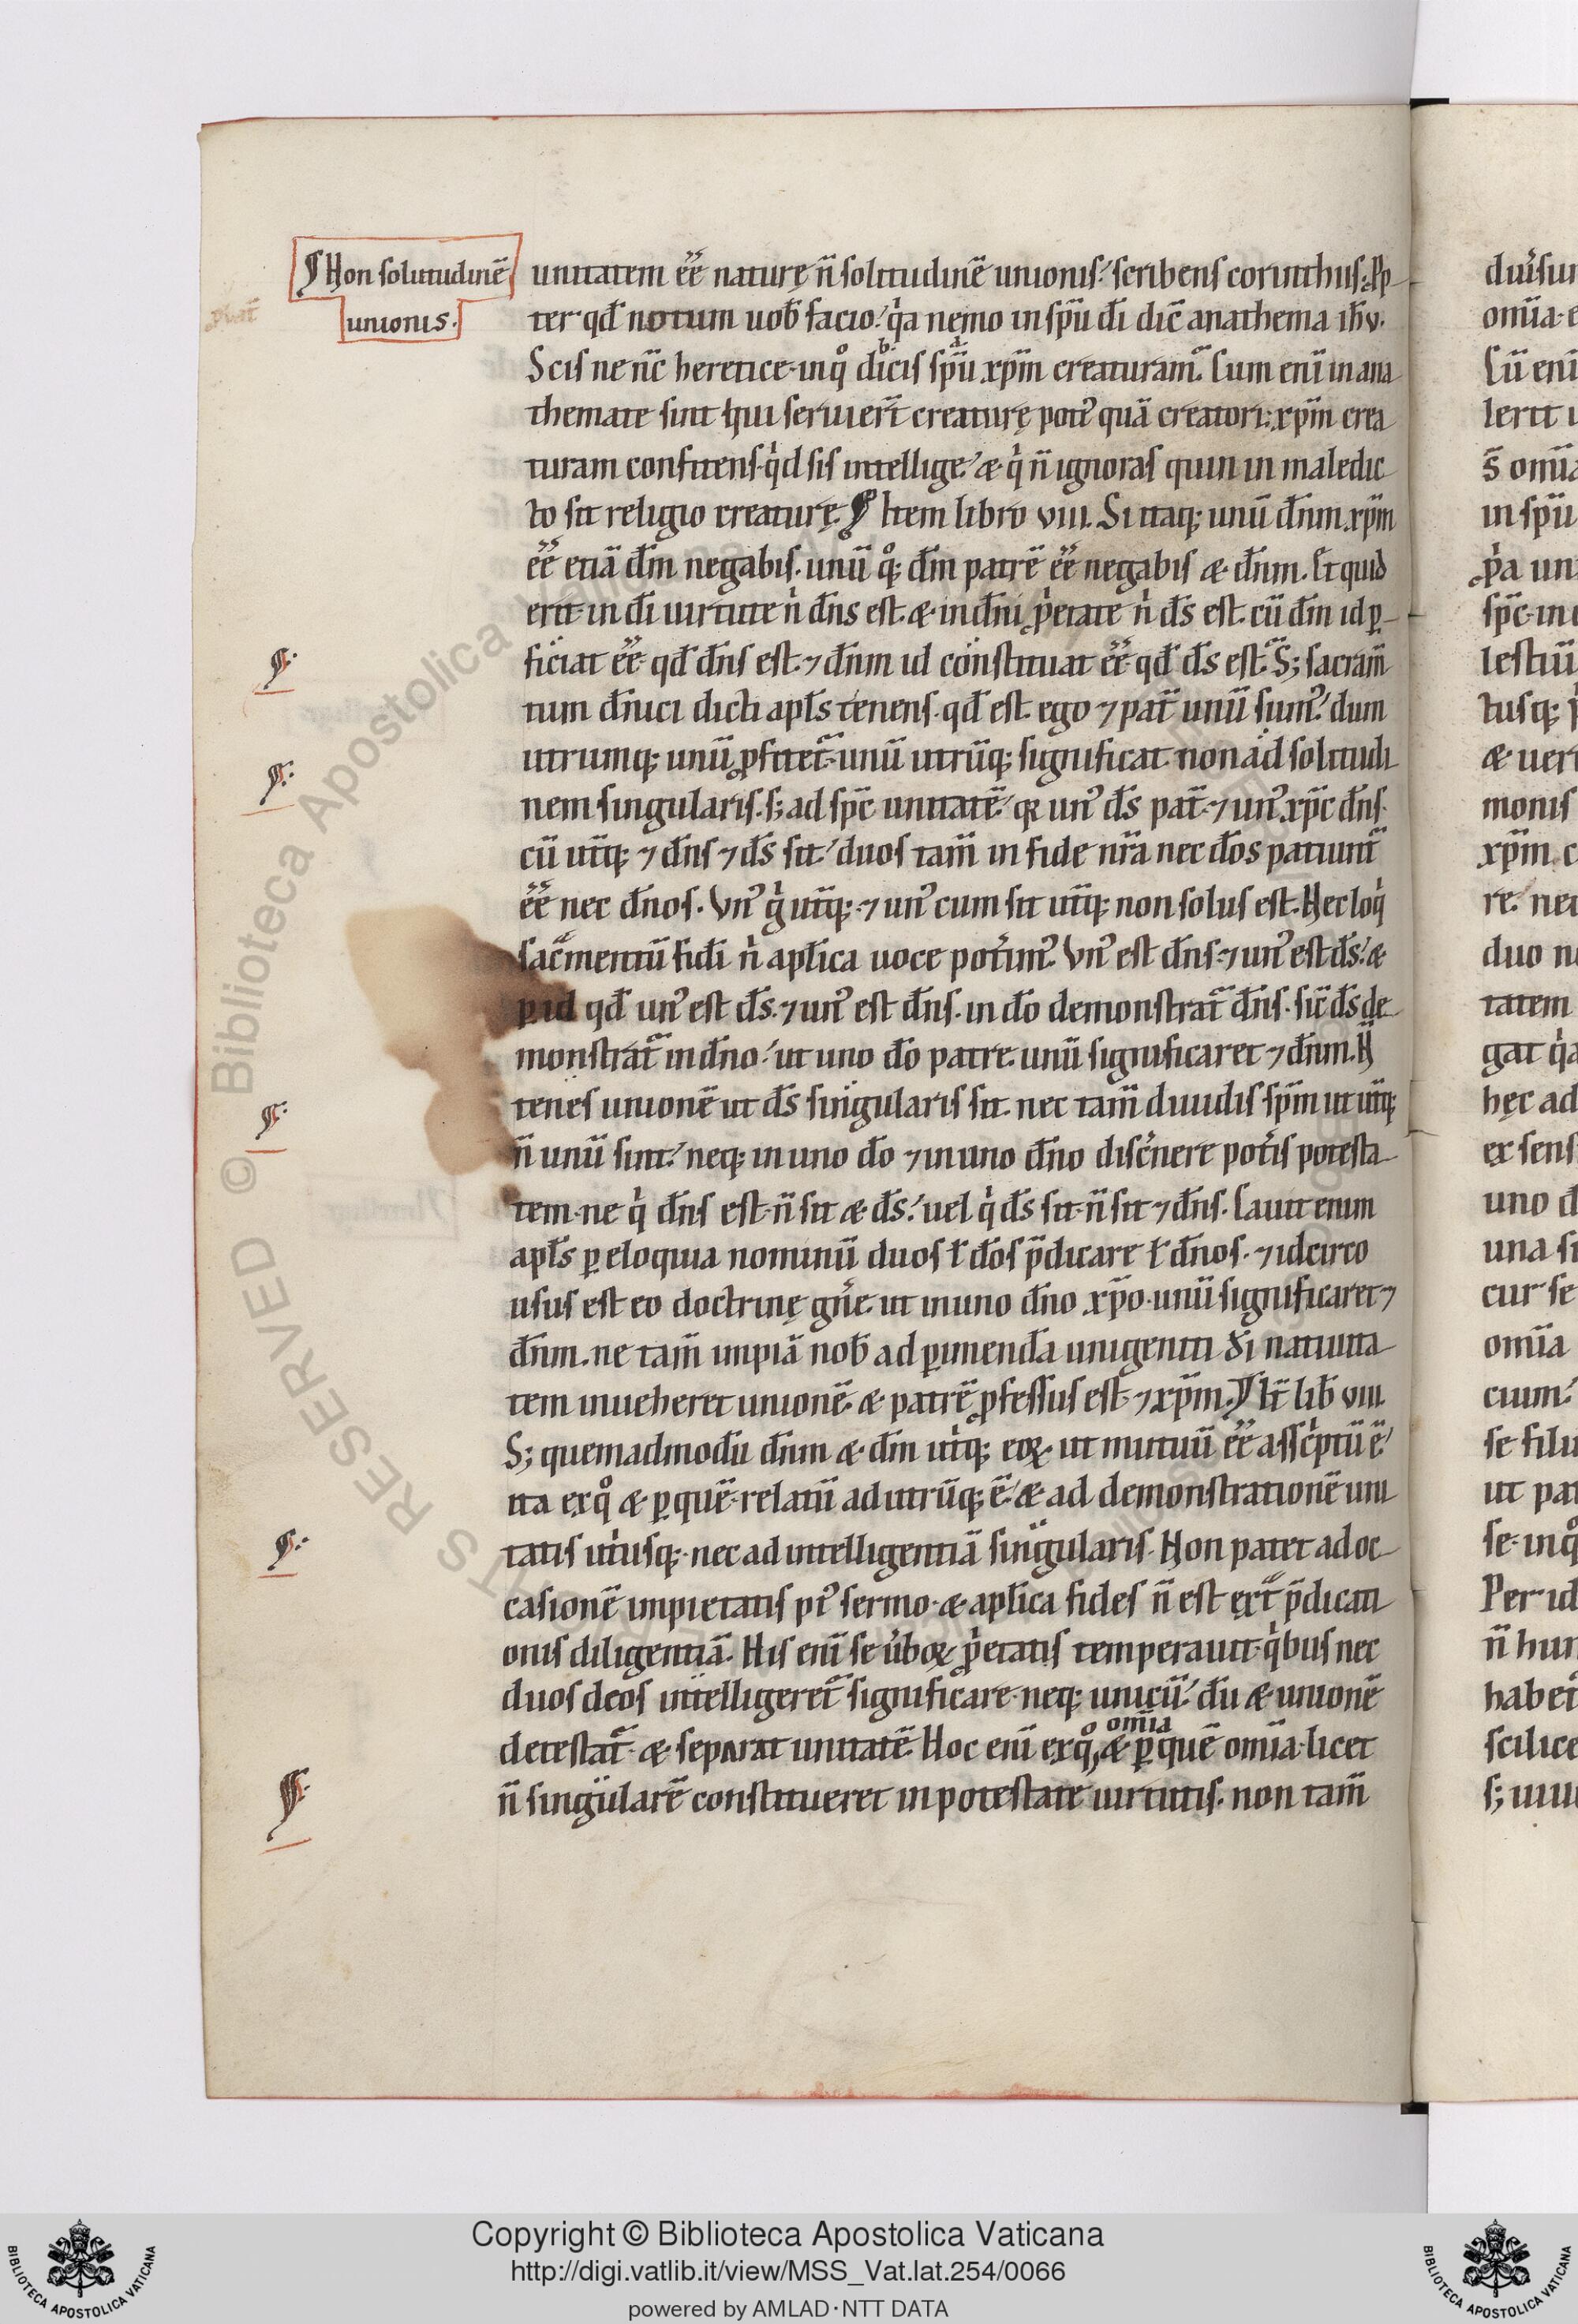 ¶ Non solitudinē
unionis.
unitatem ee̅ naturę n̅ solitudinē unionis. scribens corinthiis. Pp
ter qd̅ notum uob̅ facio. qͥa nemo in sp̅u di̅ dic̅ anathema ih̅v.
Scis ne nc̅ heretice. inqͦ dicis sp̅u xp̅m creaturam. Cum eni̅ in ana
themate sint qui seruier̅t creaturę potiꝰ quā creatori. xp̅m crea
turam confitens. qͥd sis intellige. & qͥ n̅ ignoras quin in maledic
to sit religio creaturę. ¶ Item libro viii. Si itaq; unū dn̅m xp̅m
ee̅ etiā dm̅ negabis. unū qͦq; dm̅ patrē ee̅ negabis & dn̅m. Et quid
erit in di̅ uirtute nͥ dn̅s est. & in dn̅i ꝓͥetate nͥ ds̅ est. cū dm̅ id ꝑ
ficiat ee̅ qd̅ dn̅s est. ⁊ dn̅m id constituat ee̅ qd̅ ds̅ est. S; sacram̅
tum dn̅ici dicti apl̅s tenens. qd̅ est. ego ⁊ pat̅ unū sumꝰ. dum
utrumq; unū ꝓfitet̅. unū utrūq; significat non ad solitudi
nem singularis. s; ad sp̅c unitatē. qꝛ unꝰ ds̅ pat̅. ⁊ unꝰ xp̅c dn̅s.
cū ut̅q; ⁊ dn̅s ⁊ ds̅ sit. duos tam̅ in fide nr̅a nec do̅s patiunt̅
ee̅ nec dn̅os. Vnꝰ gͥ ut̅q;. ⁊ unꝰ cum sit ut̅q; non solus est. Nec loqͥ
sac̅mentū fidi̅ nͥ apl̅ica uoce pot̅imꝰ. Vnꝰ est dn̅s. ⁊ unꝰ est ds̅. &
ꝑ id qd̅ unꝰ est ds̅. ⁊ unꝰ est dn̅s. in do̅ demonstrat̅ dn̅s. sic̅ ds̅ de
monstrat̅ in dn̅o. ut uno do̅ patre. unū significaret ⁊ dn̅m. N̅
tenes unionē ut ds̅ singularis sit. nec tam̅ diuidis sp̅m ut ut̅q;
n̅ unū sint. neq; in uno do̅ ⁊ in uno dn̅o disc̅nere pot̅is potesta
tem. ne qͥ dn̅s est. n̅ sit & ds̅. uel qͥ ds̅ sit. n̅ sit ⁊ dn̅s. Cauit enim
apl̅s ꝑ eloquia nominū duos ł do̅s p̅dicare ł dn̅os. ⁊ idcirco
usus est eo doctrinę gn̅e. ut in uno dn̅o xp̅o. unū significaret ⁊
dn̅m. ne tam̅ impiā nob̅ ad ꝑimenda̅ unigeniti di̅ natiuita
tem inueheret unionē. & patrē ꝓfessus est. ⁊ xp̅m. ¶ It̅ lib̅ viii.
S; quemadmodū dn̅m & dm̅ utͥq; eoꝝ. ut mutuū ee̅ asscͥptū ē.
ita exqͦ & ꝑ quē. relatū ad utrūq; ē. & ad demonstrationē uni
tatis utͥusq;. nec ad intelligentiā singularis. Non patet ad oc
casionē impietatis p̅tꝰ sermo. & apl̅ica fides n̅ est ext̅ p̅dicati
onis diligentiā. His eni̅ se ūboꝝ ꝓͥetatis temperauit. qͥbus nec
duos deos intelligeret̅ significare. neq; unicū. du̅ & unionē
detestat̅. & separat unitatē. Hoc eni̅ exqͦ, omi̅a & ꝑ quē omi̅a. licet
n̅ singularē constitueret in potestate uirtutis. non tam̅
Copyright © Biblioteca Apostolica Vaticana
http://digi.vatlib.it/view/MSS_Vat.lat.254/0066
powered by AMLAD·NTT DATA